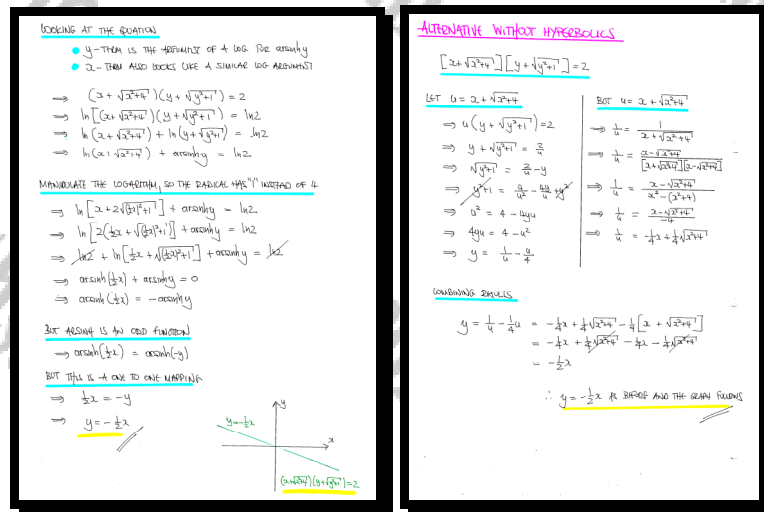 LOOKING AT THE EQUATION
● y-TERM IS THE ARGUMENT OF A LOG FOR arsinhy
● x-TERM ALSO LOOKS LIKE A SIMILAR LOG ARGUMENT
⇒ (x+√x²+4)(y+√y²+1) = 2
⇒ ln[(x+√x²+4)(y+√y²+1)] = ln2
⇒ ln(x+√x²+4) + ln(y+√y²+1) = ln2
⇒ ln(x+√x²+4) + arsinhy = ln2
MANIPULATE THE LOGARITHM, SO THE RADICAL HAS "1" INSTEAD OF 4
⇒ ln[x+2√(½x)²+1] + arsinhy = ln2
⇒ ln[2(½x+√(½x)²+1)] + arsinhy = ln2
⇒ ln2 + ln[½x+√(½x)²+1] + arsinhy = ln2
⇒ arsinh(½x) + arsinhy = 0
⇒ arsinh(½x) = -arsinhy
BUT ARSINH IS AN ODD FUNCTION
⇒ arsinh(½x) = arsinh(-y)
BUT THIS IS A ONE TO ONE MAPPING
⇒ ½x = -y
⇒ y = -½x
y
y=-½x
x
(x+√x²+4)(y+√y²+1)=2
ALTERNATIVE WITHOUT HYPERBOLICS
[x+√x²+4][y+√y²+1] = 2
LET u = x+√x²+4
⇒ u(y+√y²+1) = 2
⇒ y+√y²+1 = 2/u
⇒ √y²+1 = 2/u - y
⇒ y²+1 = 4/u² - 4y/u + y²
⇒ u² = 4 - 4yu
⇒ 4yu = 4 - u²
⇒ y = 1/u - u/4
BUT u = x+√x²+4
⇒ 1/u = 1/(x+√x²+4)
⇒ 1/u = (x-√x²+4)/([x+√x²+4][x-√x²+4])
⇒ 1/u = (x-√x²+4)/(x²-(x²+4))
⇒ 1/u = (x-√x²+4)/-4
⇒ 1/u = -¼x+¼√x²+4
COMBINING RESULTS
y = 1/u - ¼u = -¼x+¼√x²+4 - ¼[x+√x²+4]
= -¼x+¼√x²+4 - ¼x - ¼√x²+4
= -½x
∴ y = -½x AS BEFORE AND THE GRAPH FOLLOWS